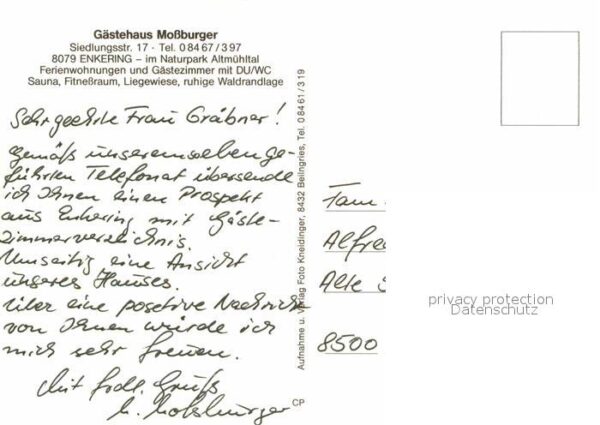 Gästehaus Moßburger
Siedlungsstr. 17 · Tel. 0 84 67 / 3 97
8079 ENKERING – im Naturpark Altmühltal
Ferienwohnungen und Gästezimmer mit DU/WC
Sauna, Fitneßraum, Liegewiese, ruhige Waldrandlage
Sehr geehrte Frau Gräbner!
gemäß unserem soeben ge-
führten Telefonat übersende
ich Ihnen einen Prospekt
aus Enkering mit Gäste-
zimmerverzeichnis.
Umseitig eine Ansicht
unseres Hauses.
Über eine positive Nachricht
von Ihnen würde ich
mich sehr freuen.
Mit frdl. Gruß
M. Moßburger
Aufnahme u. Verlag Foto Kneidinger, 8432 Beilngries, Tel. 0 84 61 / 3 19
CP
Fam.
Alfred
Alte S
8500
privacy protection
Datenschutz